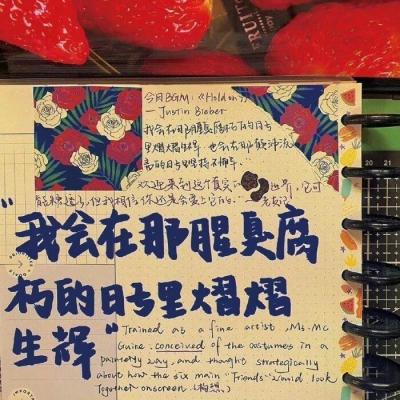 今日BGM:《Hold on》
— Justin Bieber
我会在那腥臭腐朽的日子
里熠熠生辉,也会在那颠沛流
离的日子里坚持不懈.
欢迎来到这个真实的世界,它可
能糟透了,但我相信你还是会爱上它的.
“我会在那腥臭腐
朽的日子里熠熠
生辉”
Trained as a fine artist, Ms.Mc
Guire conceived of the costumes in a
painterly way, and thought strategically
about how the six main "Friends" would look
together onscreen.(构想)
20 21